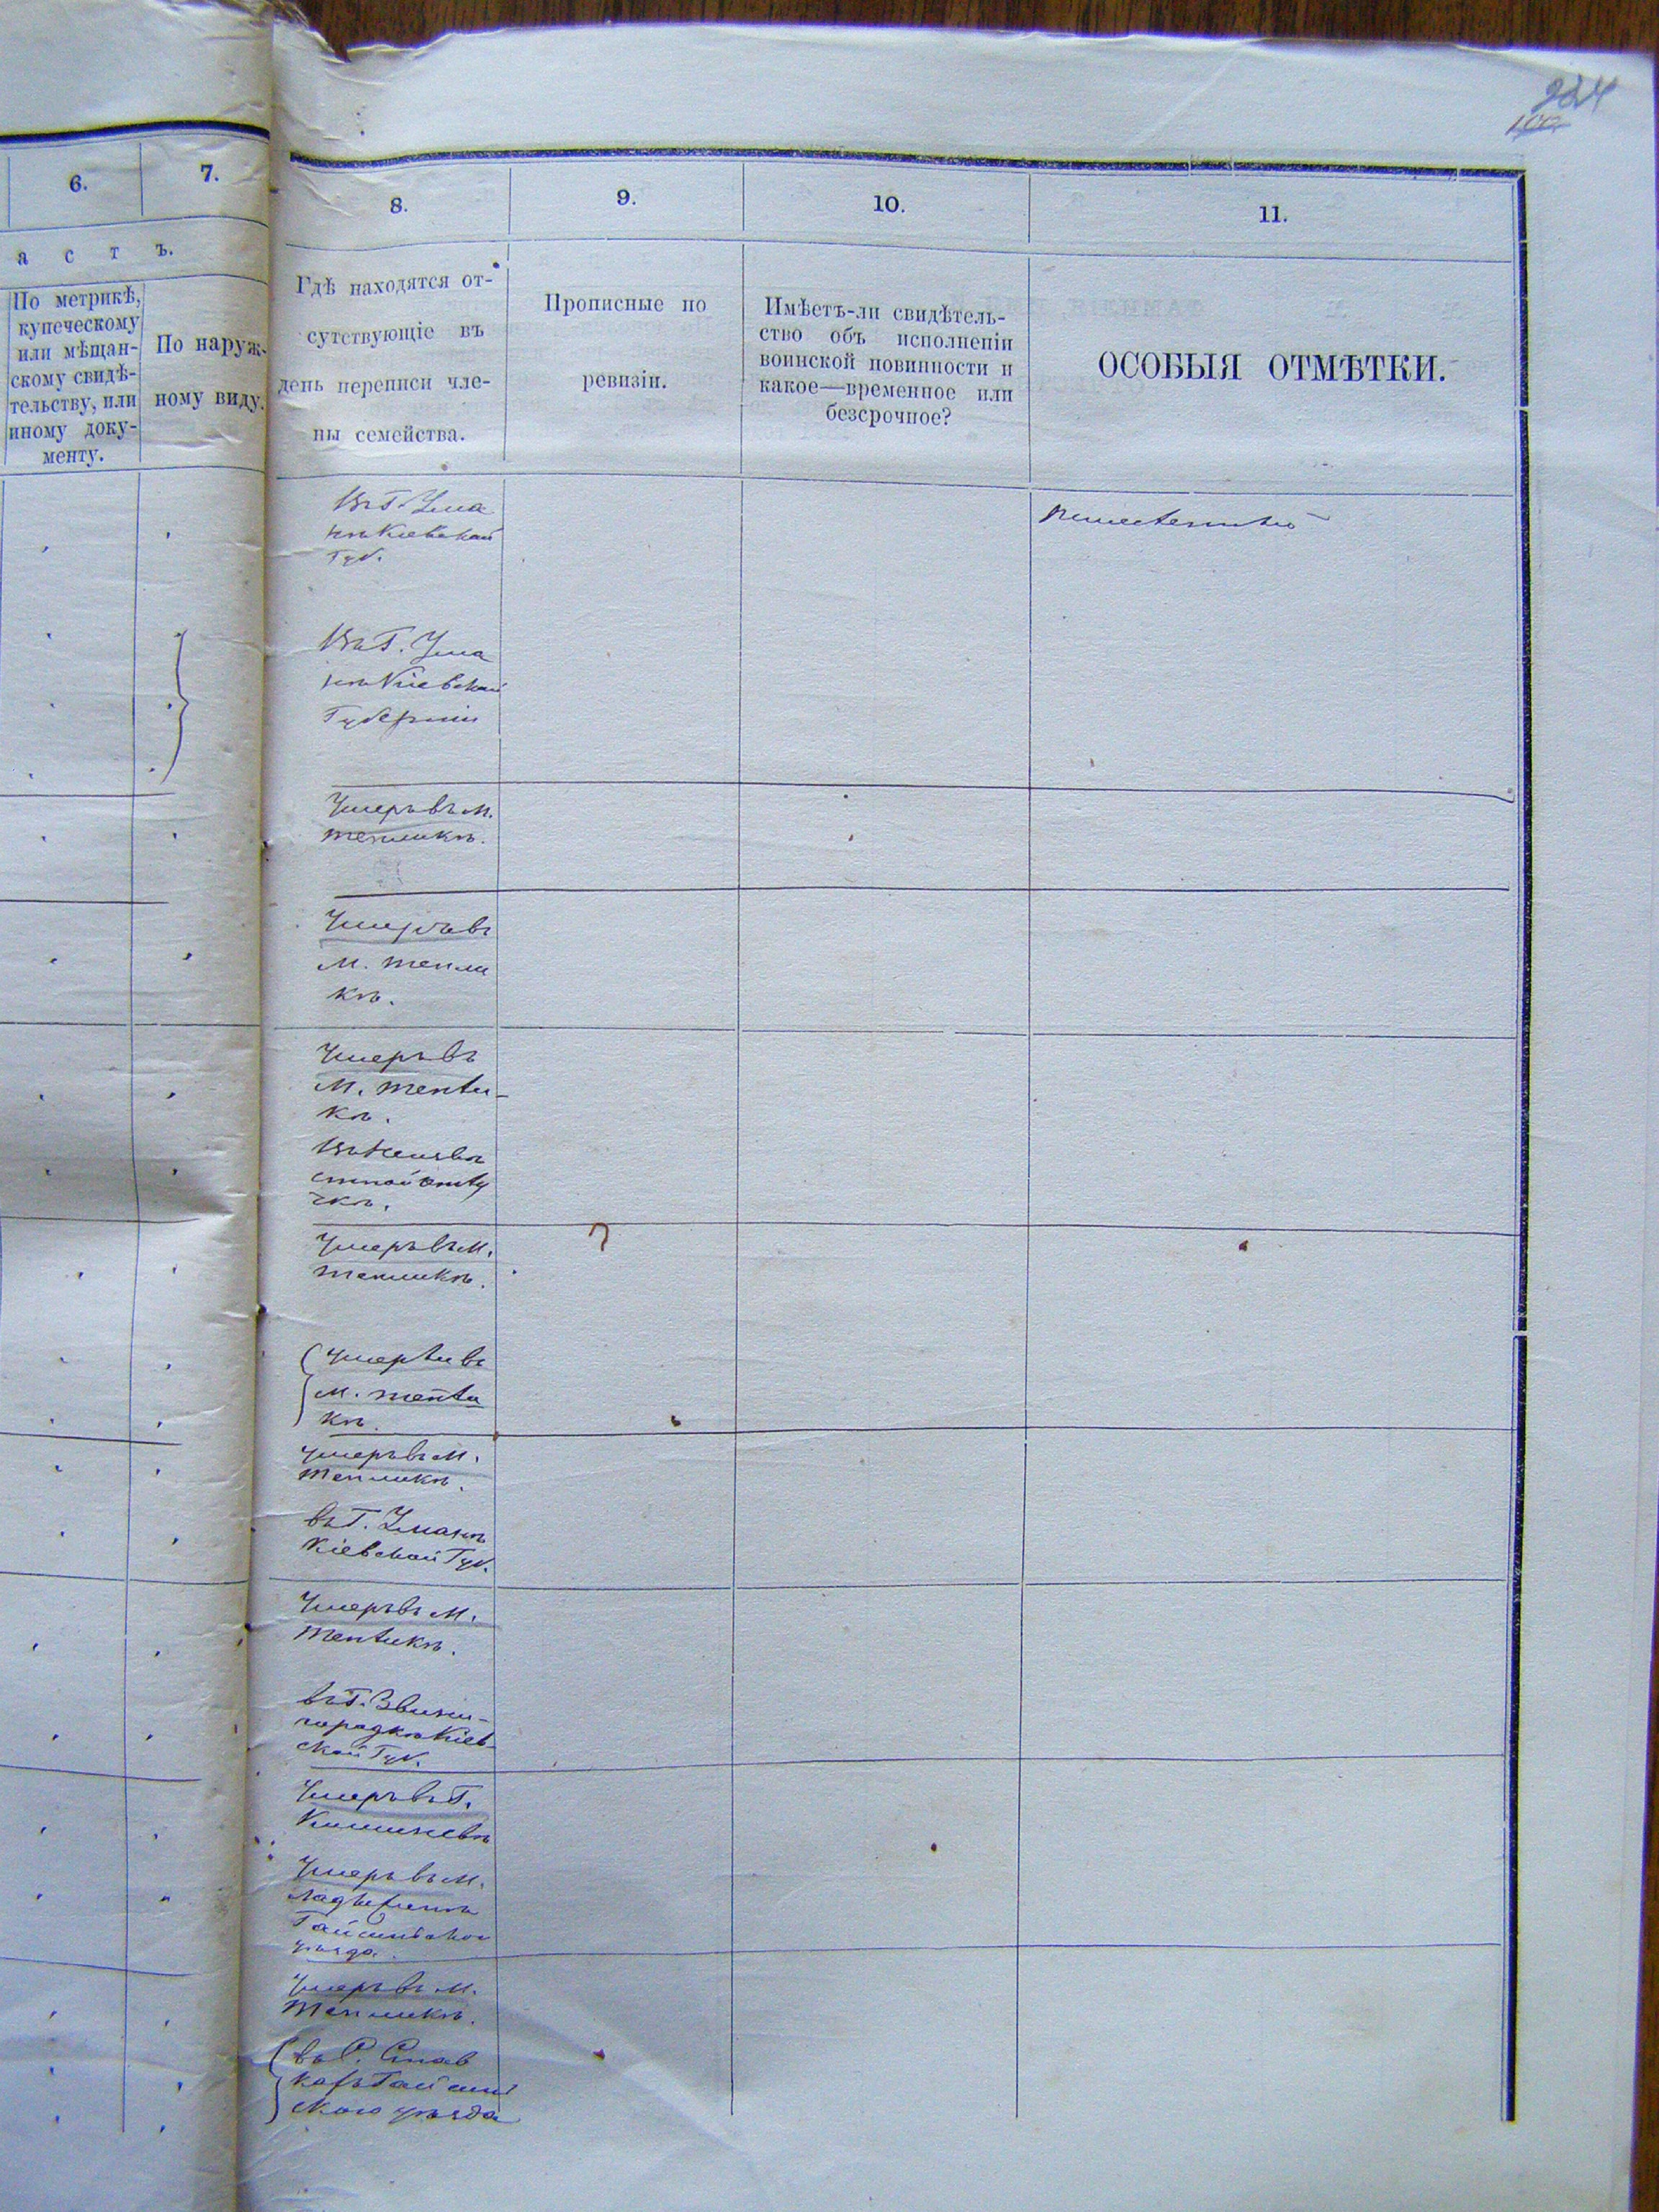 224
100
6.
7.
8.
9.
10.
11.
а с т ъ.
По метрикѣ,
купеческому
или мѣщан-
скому свидѣ-
тельству, или
иному доку-
менту.
По наруж-
ному виду.
Гдѣ находятся от-
сутствующіе въ
день переписи чле-
ны семейства.
Прописные по
ревизіи.
Имѣетъ-ли свидѣтель-
ство объ исполненіи
воинской повинности и
какое—временное или
безсрочное?
ОСОБЫЯ ОТМѢТКИ.
Въ Г. Ума
нѣ Кіевской
Губ.
Въ Г. Ума
нѣ Кіевской
Губерніи
Умеръ въ М.
Тепликѣ.
Умеръ въ
М. Тепли
кѣ.
Умеръ въ
М. Тепли-
кѣ.
Въ Неизвѣ
стной отлу
чкѣ.
Умеръ въ М.
Тепликѣ.
Умерли въ
М. Тепли
кѣ.
Умеръ въ М.
Тепликѣ.
въ Г. Уманѣ
Кіевской Губ.
Умеръ въ М.
Тепликѣ.
въ Г. Звени-
городкѣ Кіев-
ской Губ.
Умеръ въ Г.
Кишиневѣ
Умеръ въ М.
Ладыжинѣ
Гайсинскаго
уѣзда.
Умеръ въ М.
Тепликѣ.
въ С.
Гайсин
скаго уѣзда